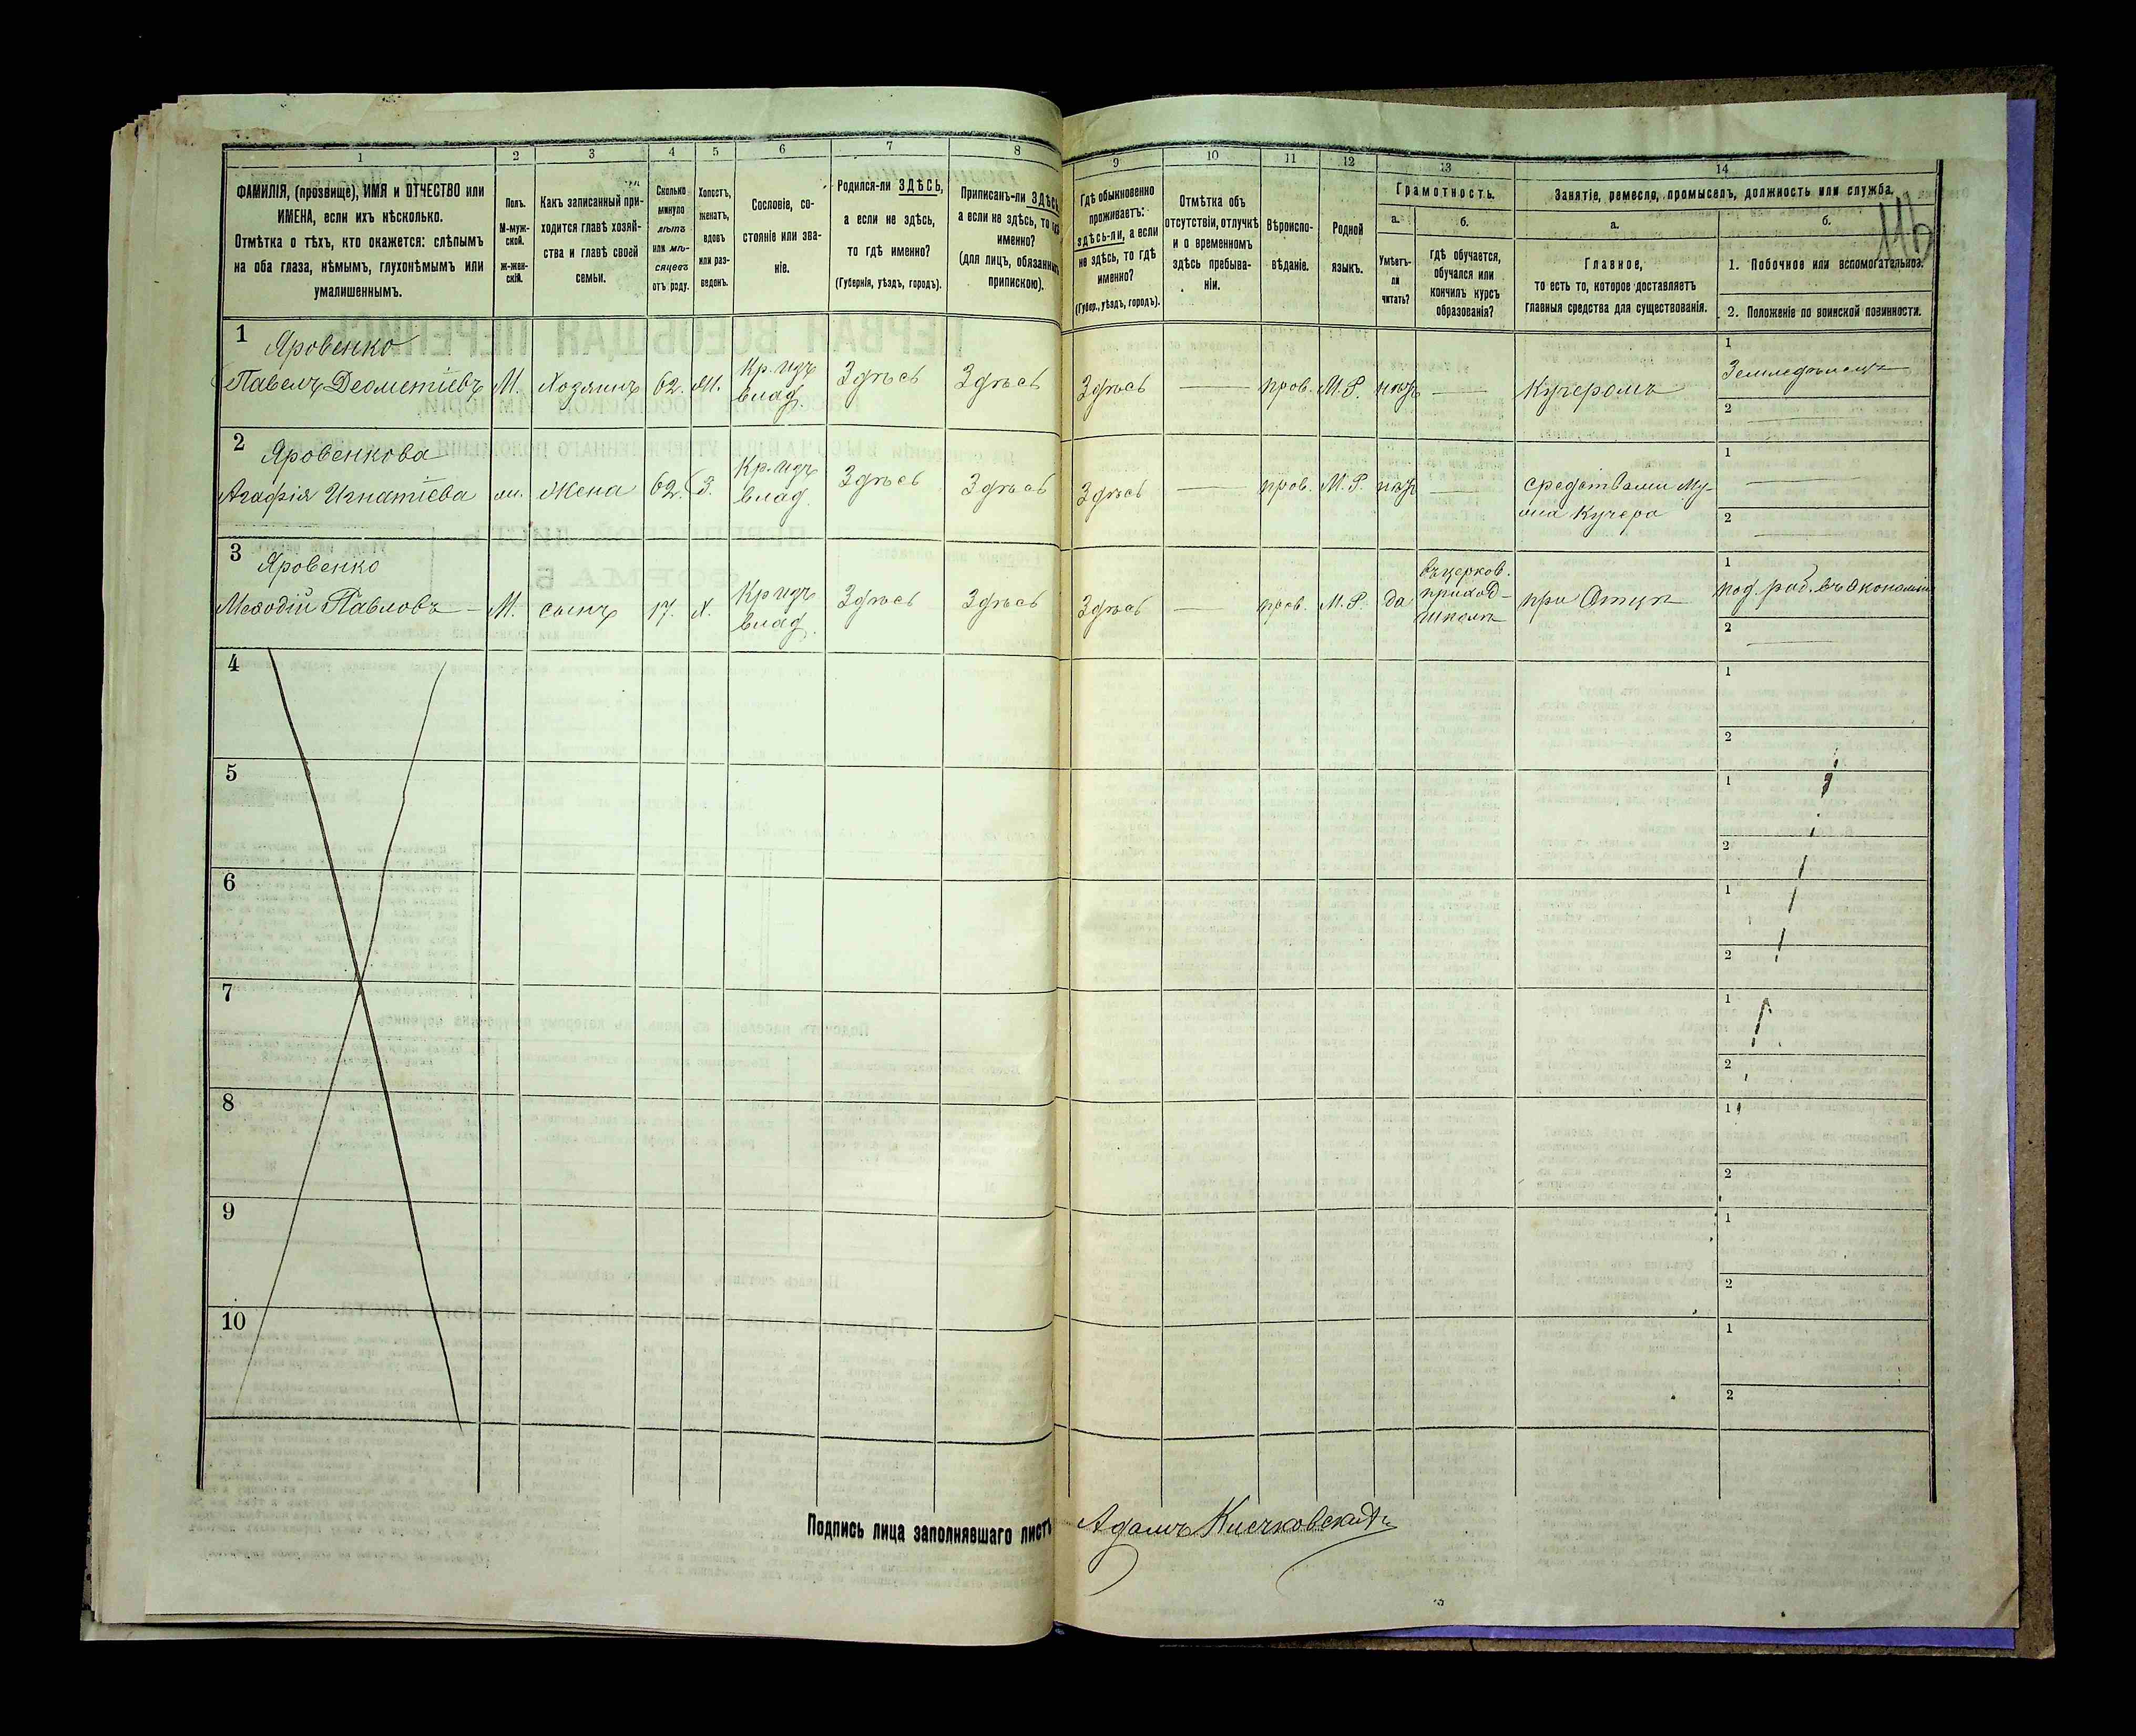 1 2 3 4 5 6 7 8 9 10 11 12 13 14
ФАМИЛІЯ, (прозвище), ИМЯ и ОТЧЕСТВО или
ИМЕНА, если ихъ нѣсколько.
Отмѣтка о тѣхъ, кто окажется: слѣпымъ
на оба глаза, нѣмымъ, глухонѣмымъ или
умалишеннымъ.
Полъ.
М-муж-
ской.
Ж-жен-
скій.
Какъ записанный при-
ходится главѣ хозяй-
ства и главѣ своей
семьи.
Сколько
минуло
лѣтъ
или мѣ-
сяцевъ
отъ роду.
Холостъ,
женатъ,
вдовъ
или раз-
веденъ.
Сословіе, со-
стояніе или зва-
ніе.
Родился-ли ЗДѢСЬ,
а если не здѣсь,
то гдѣ именно?
(Губернія, уѣздъ, городъ).
Приписанъ-ли ЗДѢСЬ,
а если не здѣсь, то гдѣ
именно?
(для лицъ, обязанныхъ
припискою).
Гдѣ обыкновенно
проживаетъ:
здѣсь-ли, а если
не здѣсь, то гдѣ
именно?
(Губер., уѣздъ, городъ).
Отмѣтка объ
отсутствіи, отлучкѣ
и о временномъ
здѣсь пребыва-
ніи.
Вѣроиспо-
вѣданіе.
Родной
языкъ.
Грамотность.
а.
Умѣетъ-
ли
читать?
б.
Гдѣ обучается,
обучался или
кончилъ курсъ
образованія?
Занятіе, ремесло, промыселъ, должность или служба.
а.
Главное,
то есть то, которое доставляетъ
главныя средства для существованія.
б.
1. Побочное или вспомогательное.
2. Положеніе по воинской повинности.
116
1 Яровенко
Павелъ Деометіевъ М. Хозяинъ 62. Ж. Кр. изъ влад. Здѣсь Здѣсь Здѣсь — прав. М.Р. нѣтъ — Кучеромъ
1 Земледѣлецъ
2 —
2 Яровенкова
Агафія Игнатіева ж. Жена 62. З. Кр. изъ влад. Здѣсь Здѣсь Здѣсь — прав. М.Р. нѣтъ — средствами му-
жа Кучера
1 —
2 —
3 Яровенко
Мефодій Павловъ М. сынъ 17. Х. Кр изъ влад. Здѣсь Здѣсь Здѣсь — прав. М.Р. да въ церков.
приход-
школѣ
при Отцѣ
1 под. раб. въ экономіи
2 —
4 1
2
5 1
2
6 1
2
7 1
2
8 1
2
9 1
2
10 1
2
Подпись лица заполнявшаго листъ